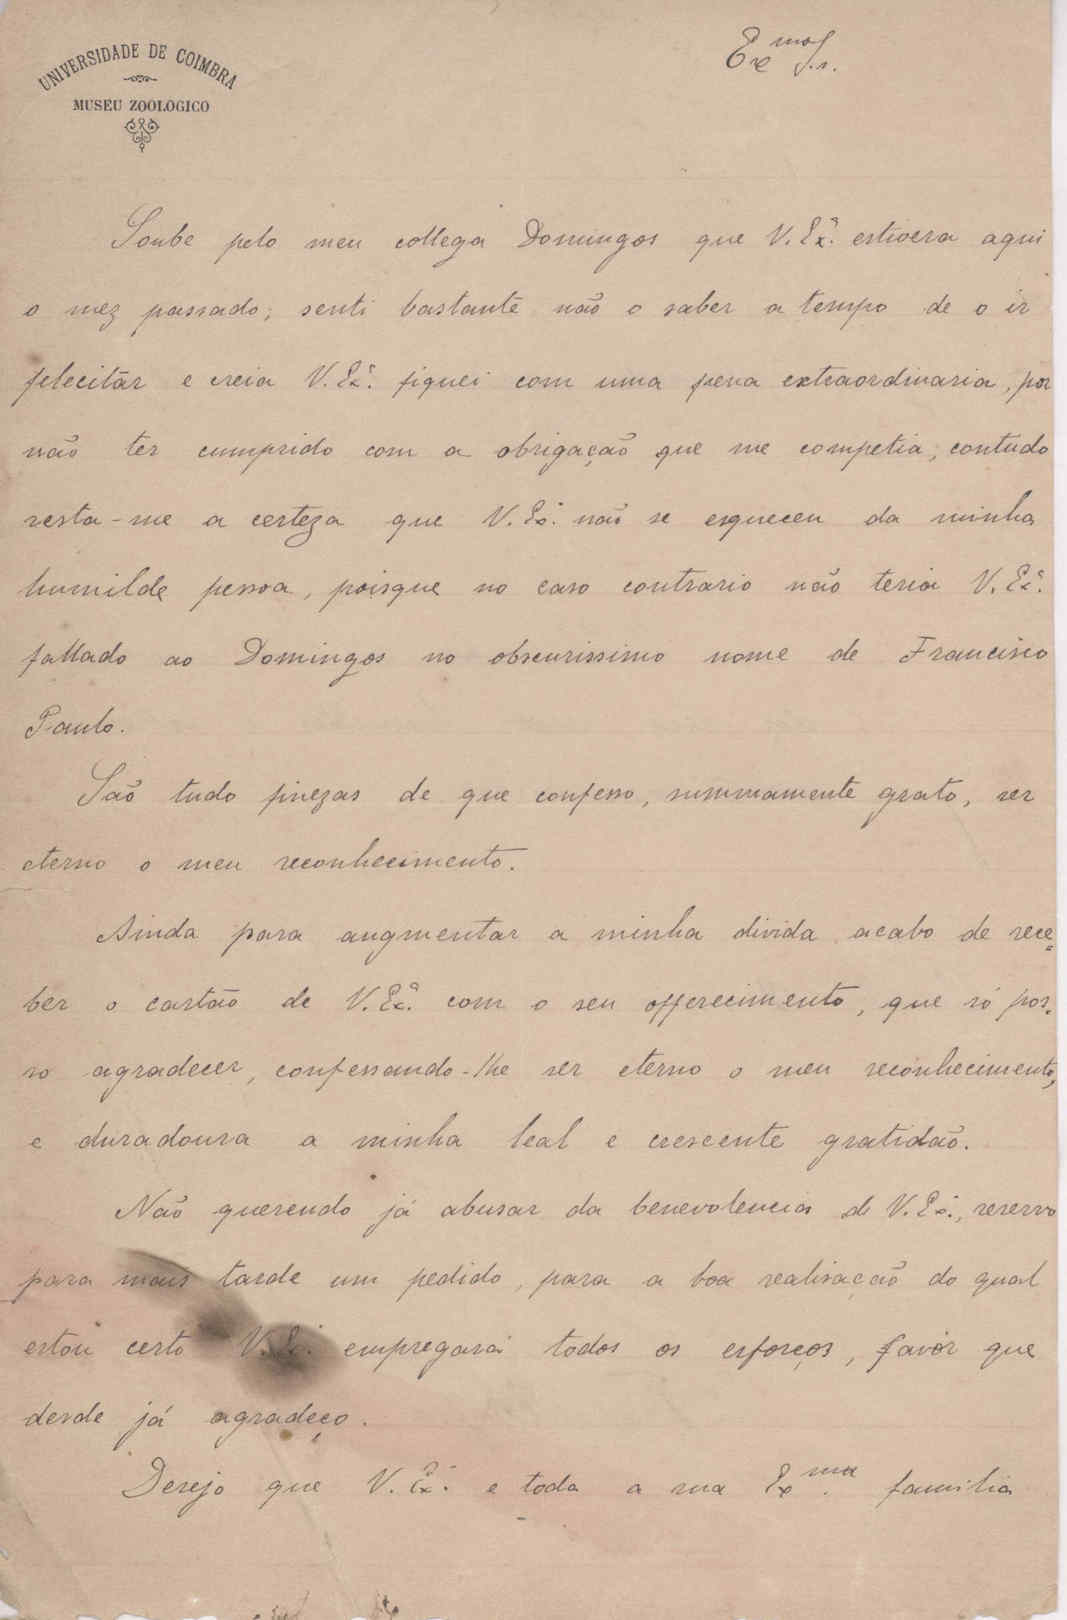 UNIVERSIDADE DE COIMBRA
MUSEU ZOOLOGICO
Exmo Sr.
Soube pelo meu collega Domingos que V. Exª. estivera aqui
o mez passado; senti bastante não o saber a tempo de o ir
felecitar e creia V. Exª. fiquei com uma pena extraordinaria, por
não ter cumprido com a obrigação que me competia, contudo
resta-me a certeza que V. Exª. não se esqueceu da minha
humilde pessoa, poisque no caso contrario não teria V. Exª.
fallado ao Domingos no obscurissimo nome de Francisco
Paulo.
São tudo finezas de que confesso, summamente grato, ser
eterno o meu reconhecimento.
Ainda para augmentar a minha divida acabo de rece=
ber o cartão de V. Exª. com o seu offerecimento, que só pos=
so agradecer, confessando-lhe ser eterno o meu reconhecimento,
e duradoura a minha leal e crescente gratidão.
Não querendo já abusar da benevolencia de V. Exª., reservo
para mais tarde um pedido, para a boa realisação do qual
estou certo V. Exª. empregará todos os esforços, favor que
desde já agradeço.
Desejo que V. Exª. e toda a sua Exma. familia